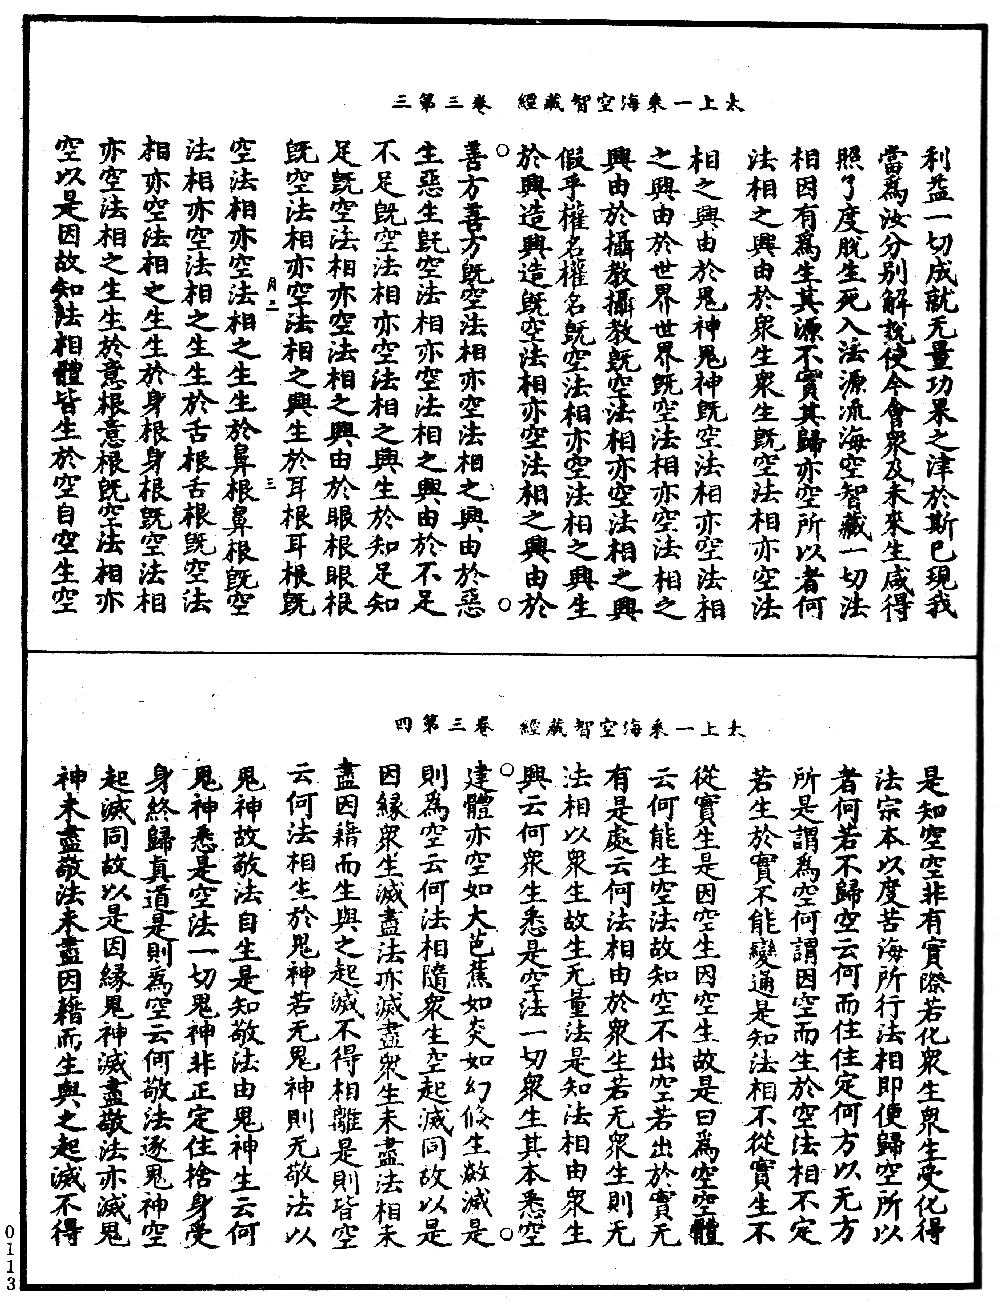 太上一乘海空智藏經　卷三第三
利益一切成就无量功果之津於斯已現我
當爲汝分別解說使今會衆及未來生咸得
照了度脫生死入法源流海空智藏一切法
相因有爲生其源不實其歸亦空所以者何
法相之興由於衆生衆生旣空法相亦空法
相之興由於鬼神鬼神旣空法相亦空法相
之興由於世界世界旣空法相亦空法相之
興由於攝教攝教旣空法相亦空法相之興
假乎權名權名旣空法相亦空法相之興生
於興造興造旣空法相亦空法相之興由於
善方善方旣空法相亦空法相之興由於惡
生惡生旣空法相亦空法相之興由於不足
不足旣空法相亦空法相之興生於知足知
足旣空法相亦空法相之興由於眼根眼根
旣空法相亦空法相之興生於耳根耳根旣
月二　三
空法相亦空法相之生生於鼻根鼻根旣空
法相亦空法相之生生於舌根舌根旣空法
相亦空法相之生生於身根身根旣空法相
亦空法相之生生於意根意根旣空法相亦
空以是因故知法相體皆生於空自空生空
太上一乘海空智藏經　卷三第四
是知空空非有實際若化衆生衆生受化得
法宗本以度苦海所行法相即使歸空所以
者何若不歸空云何而住住定何方以无方
所是謂爲空何謂因空而生於空法相不定
若生於實不能變通是知法相不從實生不
從實生是因空生因空生故是曰爲空空體
云何能生空法故知空不出空若出於實无
有是處云何法相由於衆生若无衆生則无
法相以衆生故生无量法是知法相由衆生
興云何衆生悉是空法一切衆生其本悉空
建體亦空如大芭蕉如炎如幻倏生歘滅是
則爲空云何法相隨衆生空起滅同故以是
因緣衆生滅盡法亦滅盡衆生未盡法相未
盡因藉而生與之起滅不得相離是則皆空
云何法相生於鬼神若无鬼神則无敬法以
鬼神故敬法自生是知敬法由鬼神生云何
鬼神悉是空法一切鬼神非正定住捨身受
身終歸真道是則爲空云何敬法逐鬼神空
起滅同故以是因緣鬼神滅盡敬法亦滅鬼
神未盡敬法未盡因藉而生與之起滅不得
0113